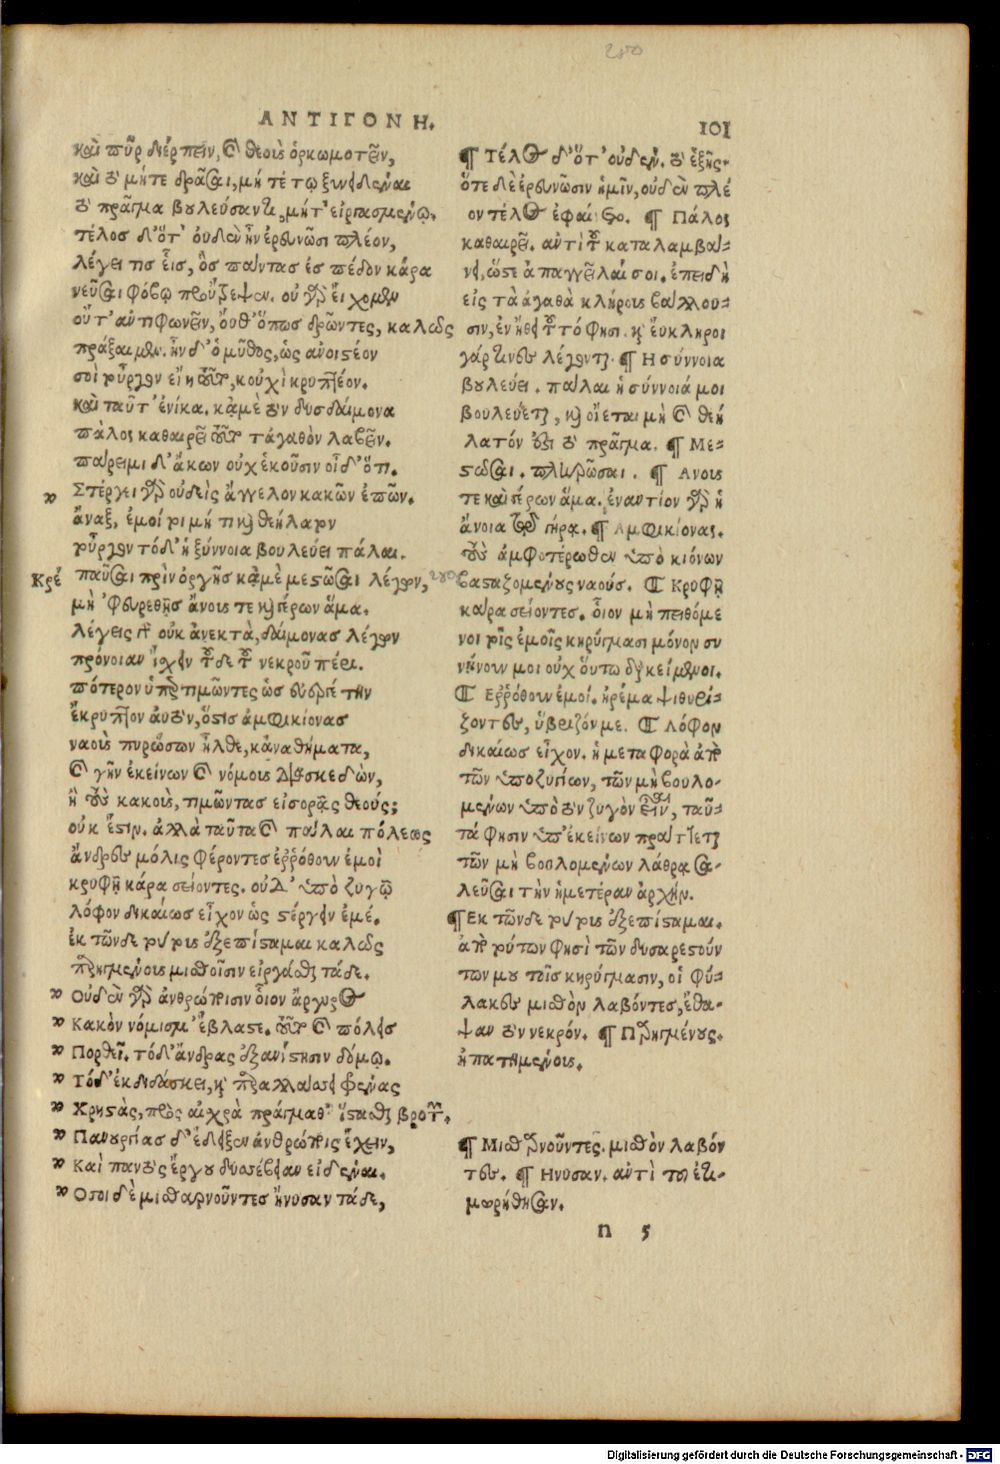 280
ΑΝΤΙΓΟΝΗ.
101
καὶ πῦρ διέρπειν, καὶ θεοὺς ὁρκωμοτεῖν,
καὶ τὸ μήτε δρᾶσαι, μή τέ τῳ ξυνειδέναι
τὸ πρᾶγμα βουλεύσαντι, μήτ' εἰργασμένῳ.
τέλος δ' ὅτ' οὐδὲν ἦν ἐρευνῶσι πλέον,
λέγει τις εἷς, ὃς πάντας ἐς πέδον κάρα
νεῦσαι φόβῳ προὔτρεψεν. οὐ γὰρ εἴχομεν
οὔτ' ἀντιφωνεῖν, οὔθ' ὅπως δρῶντες, καλῶς
πράξαιμεν. ἦν δ' ὁ μῦθος, ὡς ἀνοιστέον
σοὶ τοὖργον εἴη τοῦτο, κοὐχὶ κρυπτέον.
καὶ ταῦτ' ἐνίκα. κᾀμὲ τὸν δυσδαίμονα
πάλος καθαιρεῖ τοῦτο τἀγαθὸν λαβεῖν.
πάρειμι δ' ἄκων οὐχ ἑκοῦσιν οἶδ' ὅτι.
Στέργει γὰρ οὐδεὶς ἄγγελον κακῶν ἐπῶν.
ἄναξ, ἐμοί τοι μή τι καὶ θεήλατον
τοὖργον τόδ' ἡ ξύννοια βουλεύει πάλαι.
Κρέ παῦσαι πρὶν ὀργῆς κᾀμὲ μεστῶσαι λέγων,
μὴ 'φευρεθῇς ἄνους τε καὶ γέρων ἅμα.
λέγεις γὰρ οὐκ ἀνεκτὰ, δαίμονας λέγων
πρόνοιαν ἴσχειν τοῦδε τοῦ νεκροῦ πέρι.
πότερον ὑπερτιμῶντες ὡς εὐεργέτην
ἔκρυπτον αὐτὸν, ὅστις ἀμφικίονας
ναοὺς πυρώσων ἦλθε, κἀναθήματα,
καὶ γῆν ἐκείνων καὶ νόμους διασκεδῶν,
ἢ τοὺς κακοὺς, τιμῶντας εἰσορᾷς θεούς;
οὐκ ἔστιν. ἀλλὰ ταῦτα καὶ πάλαι πόλεως
ἄνδρες μόλις φέροντες ἐῤῥόθουν ἐμοὶ
κρυφῇ κάρα σείοντες. οὐδ' ὑπὸ ζυγῷ
λόφον δικαίως εἶχον ὡς στέργειν ἐμέ.
ἐκ τῶνδε τούτους ἐξεπίσταμαι καλῶς
παρηγμένους μισθοῖσιν εἰργάσθαι τάδε.
Οὐδὲν γὰρ ἀνθρώποισιν οἷον ἄργυρος
Κακὸν νόμισμ' ἔβλαστε. τοῦτο καὶ πόλεις
Πορθεῖ. τόδ' ἄνδρας ἐξανίστησιν δόμῳ.
Τόδ' ἐκδιδάσκει, καὶ παραλλάσσει φρένας
Χρηστὰς, πρὸς αἰσχρὰ πράγμαθ' ἵστασθαι βροτῶν.
Πανουργίας δ' ἔδειξεν ἀνθρώποις ἔχειν,
Καὶ παντὸς ἔργου δυσσέβειαν εἰδέναι.
Ὅσοι δὲ μισθαρνοῦντες ἤνυσαν τάδε,
¶ Τέλος δ' ὅτ' οὐδέν. τὸ ἑξῆς.
ὅτε δὲ ἐρευνῶσιν ἡμῖν, οὐδὲν πλέ
ον τέλος ἐφαίνετο. ¶ Πάλος
καθαιρεῖ. αὐτὶ τοῦ καταλαμβάνει,
ὥστε ἀπαγγεῖλαί σοι. ἐπειδὴ
εἰς τὰ ἀγαθὰ κλήρους βάλλου-
σιν, ἐν ἤθει τοῦτό φησι. καὶ εὔκληροι
γάρ τινες λέγονται. ¶ Η σύννοια
βουλεύει. πάλαι ἡ σύννοιά μοι
βουλεύεται, καὶ οἴεται μὴ καὶ θεή
λατόν ἐστι τὸ πρᾶγμα. ¶ Με-
στῶσαι. πληρῶσαι. ¶ Ανους
τε καὶ γέρων ἅμα. ἐναντίον γὰρ ἡ
ἄνοια τῷ γήρᾳ. ¶ Αμφικίονας.
τοὺς ἀμφοτέρωθεν ὑπὸ κιόνων
280 βασταζομένους ναούς. ¶ Κρυφῇ
κάρα σείοντες. οἷον μὴ πειθόμε
νοι τοῖς ἐμοῖς κηρύγμασι μόνον συ
νῄνουν μοι οὐχ οὕτω διακείμενοι.
¶ Εῤῥόθουν ἐμοί. ἠρέμα ψιθυρί-
ζοντες, ὕβριζόν με. ¶ Λόφον
δικαίως εἶχον. ἡ μεταφορὰ ἀπὸ
τῶν ὑποζυγίων, τῶν μὴ βουλο-
μένων ὑπὸ τὸν ζυγὸν εἶναι, ταῦ-
τά φησιν ὑπ' ἐκείνων πράττεται
τῶν μὴ βουλομένων λάθρα σα-
λεῦσαι τὴν ἡμετέραν ἀρχήν.
¶ Εκ τῶνδε τούτους ἐξεπίσταμαι.
ἀπὸ τούτων φησὶ τῶν δυσαρεστούν
των μου τοῖς κηρύγμασιν, οἱ φύ-
λακες μισθὸν λαβόντες, ἔθα-
ψαν τὸν νεκρόν. ¶ Παρηγμένους.
ἠπατημένους.
¶ Μισθαρνοῦντες. μισθὸν λαβόν
τες. ¶ Ηνυσαν. αὐτὶ τοῦ ἐτι-
μωρήθησαν.
n 5
Digitalisierung gefördert durch die Deutsche Forschungsgemeinschaft - DFG